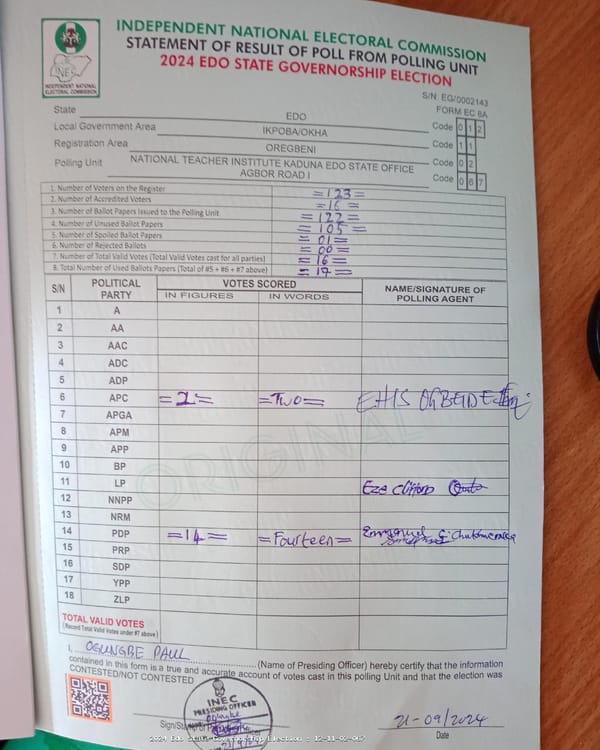 INDEPENDENT NATIONAL ELECTORAL COMMISSION
STATEMENT OF RESULT OF POLL FROM POLLING UNIT
2024 EDO STATE GOVERNORSHIP ELECTION
INEC
INDEPENDENT NATIONAL ELECTORAL COMMISSION
S/N: EG/0002143
FORM EC 8A
State EDO Code 0 1 2
Local Government Area IKPOBA/OKHA Code 1 1
Registration Area OREGBENI Code 0 2
Polling Unit NATIONAL TEACHER INSTITUTE KADUNA EDO STATE OFFICE AGBOR ROAD I Code 0 6 7
1. Number of Voters on the Register =123=
2. Number of Accredited Voters =16=
3. Number of Ballot Papers Issued to the Polling Unit =122=
4. Number of Unused Ballot Papers =105=
5. Number of Spoiled Ballot Papers =01=
6. Number of Rejected Ballots =00=
7. Number of Total Valid Votes (Total Valid Votes cast for all parties) =16=
8. Total Number of Used Ballots Papers (Total of #5 + #6 + #7 above) =17=
S/N POLITICAL PARTY VOTES SCORED NAME/SIGNATURE OF POLLING AGENT
IN FIGURES IN WORDS
1 A
2 AA
3 AAC
4 ADC
5 ADP
6 APC =2= =Two= EHIS
7 APGA
8 APM
9 APP
10 BP
11 LP Eze Clifford
12 NNPP
13 NRM
14 PDP =14= =Fourteen= Emmanuel
15 PRP
16 SDP
17 YPP
18 ZLP
ORIGINAL
TOTAL VALID VOTES
(Record Total Valid Votes under #7 above)
I, OGUNGBE PAUL (Name of Presiding Officer) hereby certify that the information
contained in this form is a true and accurate account of votes cast in this polling Unit and that the election was
CONTESTED/NOT CONTESTED
INEC
PRESIDING OFFICER
21-09/2024
Date
2024 Edo State Governorship Election - 12-11-02-067